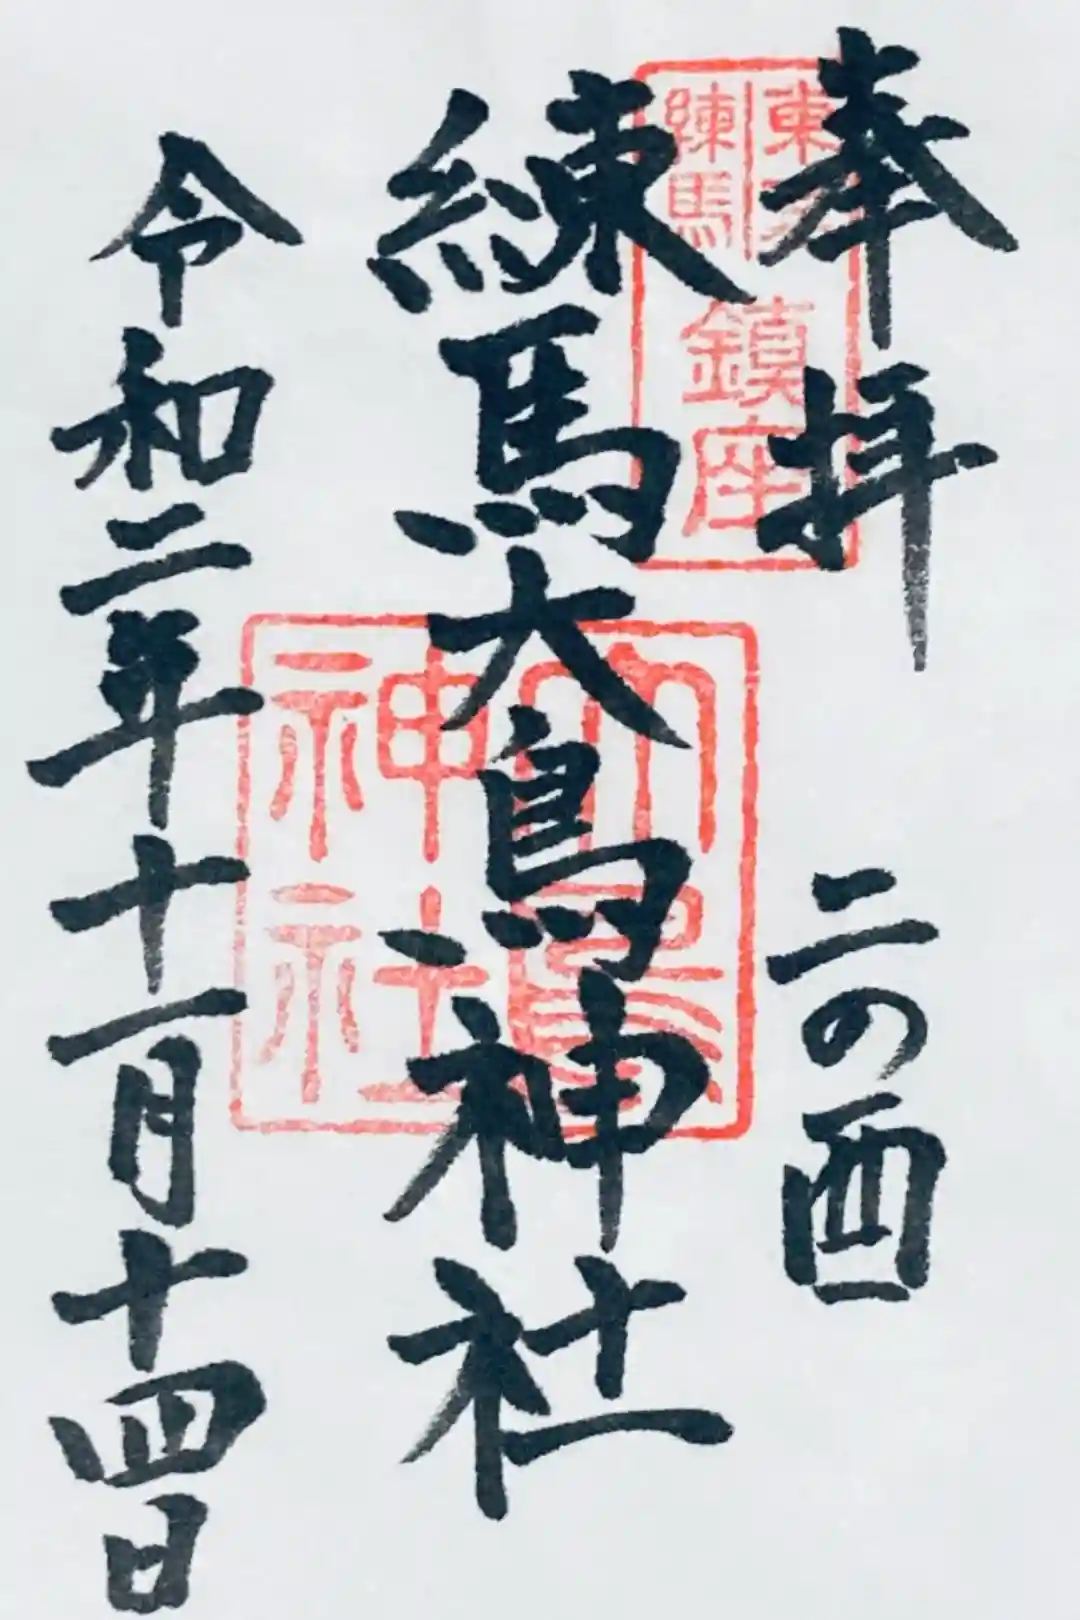 奉拝
二の酉
練馬大鳥神社
令和二年十一月十四日
東京
練馬
鎮座
大鳥
神社